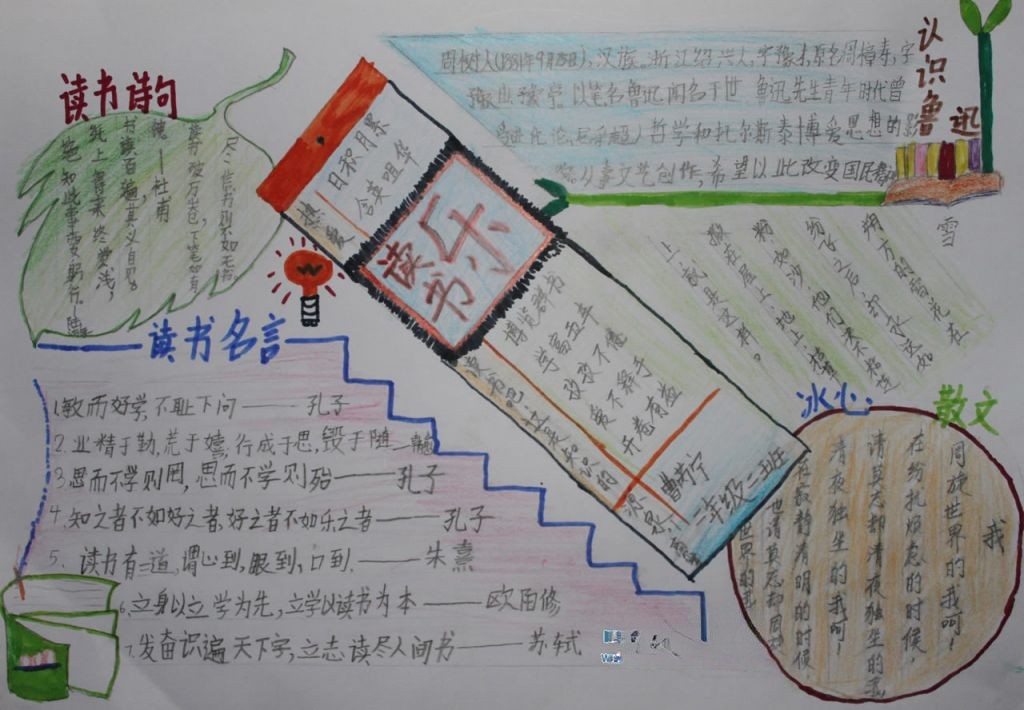 读书诗句
尽信书则不如无书
读书破万卷，下笔如有
神——杜甫
书读百遍其义自见
纸上得来终觉浅，
绝知此事要躬行。—陆
读书名言
1.敏而好学，不耻下问——孔子
2.业精于勤，荒于嬉，行成于思，毁于随—韩愈
3.思而不学则罔，思而不学则殆——孔子
4.知之者不如好之者，好之者不如乐之者——孔子
5.读书有三道，谓心到，眼到，口到.——朱熹
6.立身以立学为先，立学以读书为本——欧阳修
7.发奋识遍天下字，立志读尽人间书——苏轼
日积月累
含英咀华
热爱
读书乐
博览群书
学富五车
孜孜不倦
爱不释手
开卷有益
读书吧 这是知识的源泉
曹苏宁
二年级二班
认识鲁迅
周树人(1881年9月25日)，汉族，浙江绍兴人，字豫才，原名周樟寿，字
豫山 豫亭 以笔名鲁迅闻名于世 鲁迅先生青年时代曾
受进化论，尼采超人哲学和托尔斯泰博爱思想的影
从事文艺创作，希望以此改变国民精
雪
朔方的雪花在
纷飞之后，却永远如
粉，如沙，他们决不粘连
撒在屋上，地上，枯草
上，就是这样。
冰心：
散文
我
周旋世界的我呵！
在纷扰烦忙的时候，
请莫忘却清夜独坐的我
清夜独坐的我呵！
在寂静清明的时候
也请莫忘却周旋
世界的我